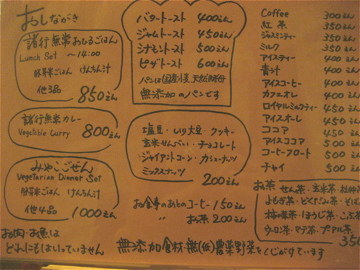 おしながき
諸行無常おしるごはん
Lunch Set ～14:00
豚骨ごはん けんちん汁
他3品
850えん
諸行無常カレー
Vegetable Curry
800えん
みやこごぜん
Vegetarian Dinner Set
けんちん汁
他4品
1000えん
お肉・お魚は
どれにもはいっていません
バタートースト 400えん
ジャムトースト 450えん
シナモントースト 500えん
ピザトースト 600えん
パンは国産小麦、天然酵母
無添加のパンです
塩豆・いり大豆 クッキー
玄米せんべい・チョコレート
ジャイアントコーン・カシューナッツ
ミックスナッツ
200えん
お食事のあとのコーヒー 150えん
お茶 200えん
無添加食材・無(低)農薬野菜をこころがけています
Coffee 300えん
紅茶 350えん
ジャスミンティー 350えん
ミルク 350えん
アイスティー 400えん
ホット 400えん
アイスコーヒー 400えん
カフェオレ 400えん
ロイヤルミルクティー 450えん
アイスオーレ 450えん
ココア 450えん
アイスココア 500えん
コーヒーフロート 500えん
チャイ 500えん
お茶 せん茶・玄米茶
よもぎ茶・どくだみ茶・そば茶
梅醤番茶・ほうじ茶・こぶ茶
ウーロン茶・マテ茶・プアール茶
350